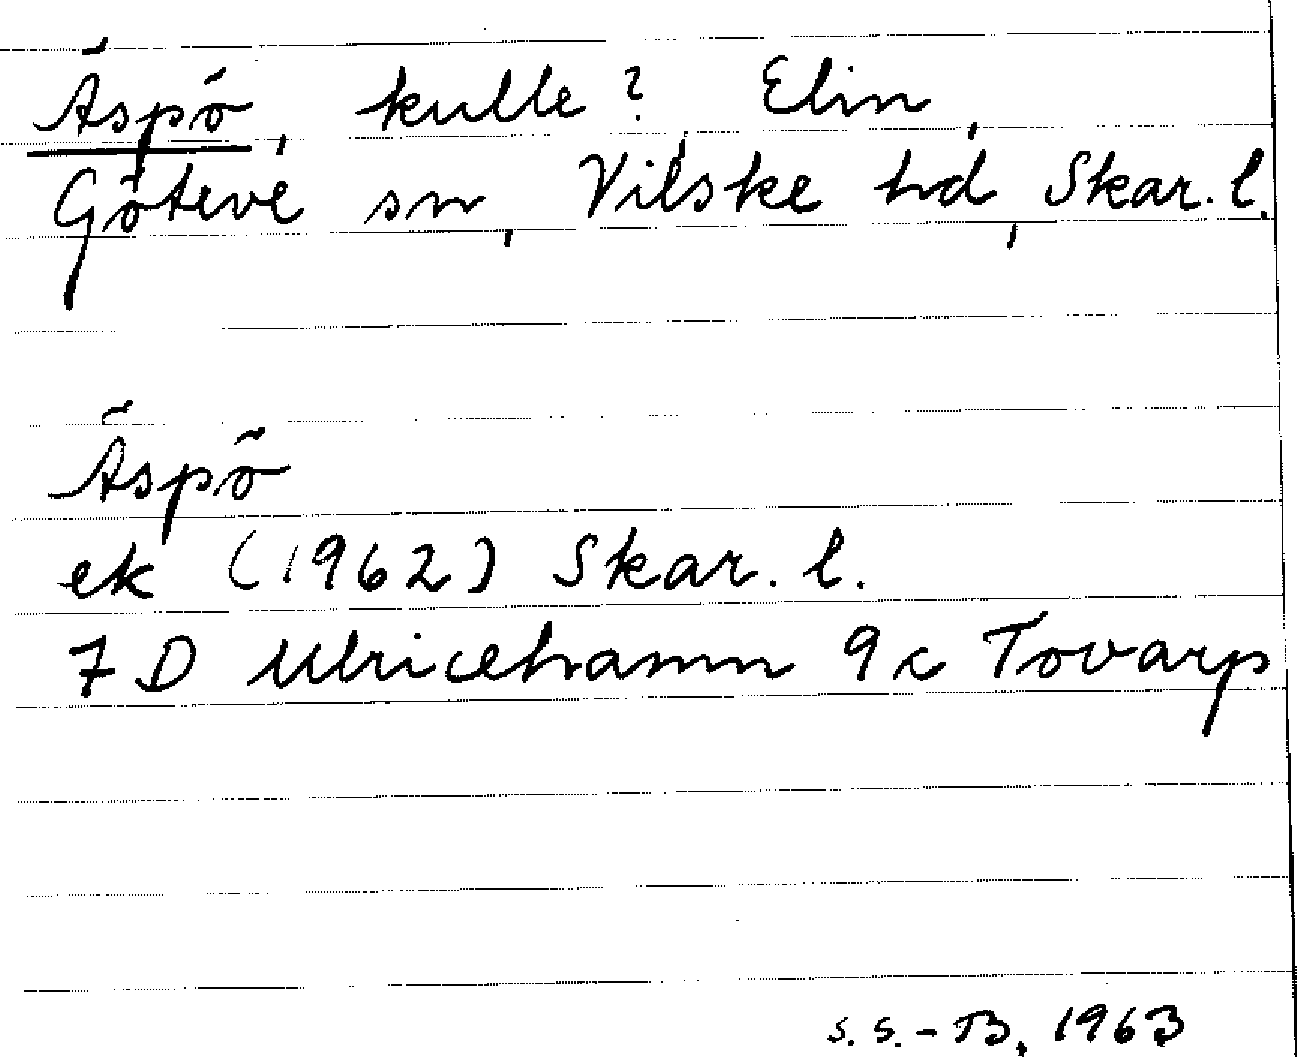 Äspö, kulle? Elin,
Göteve sn, Vilske hd, Skar. l.
Äspö
ek (1962) Skar. l.
7 D Ulricehamn 9 c Tovarp
S. S.-B, 1963